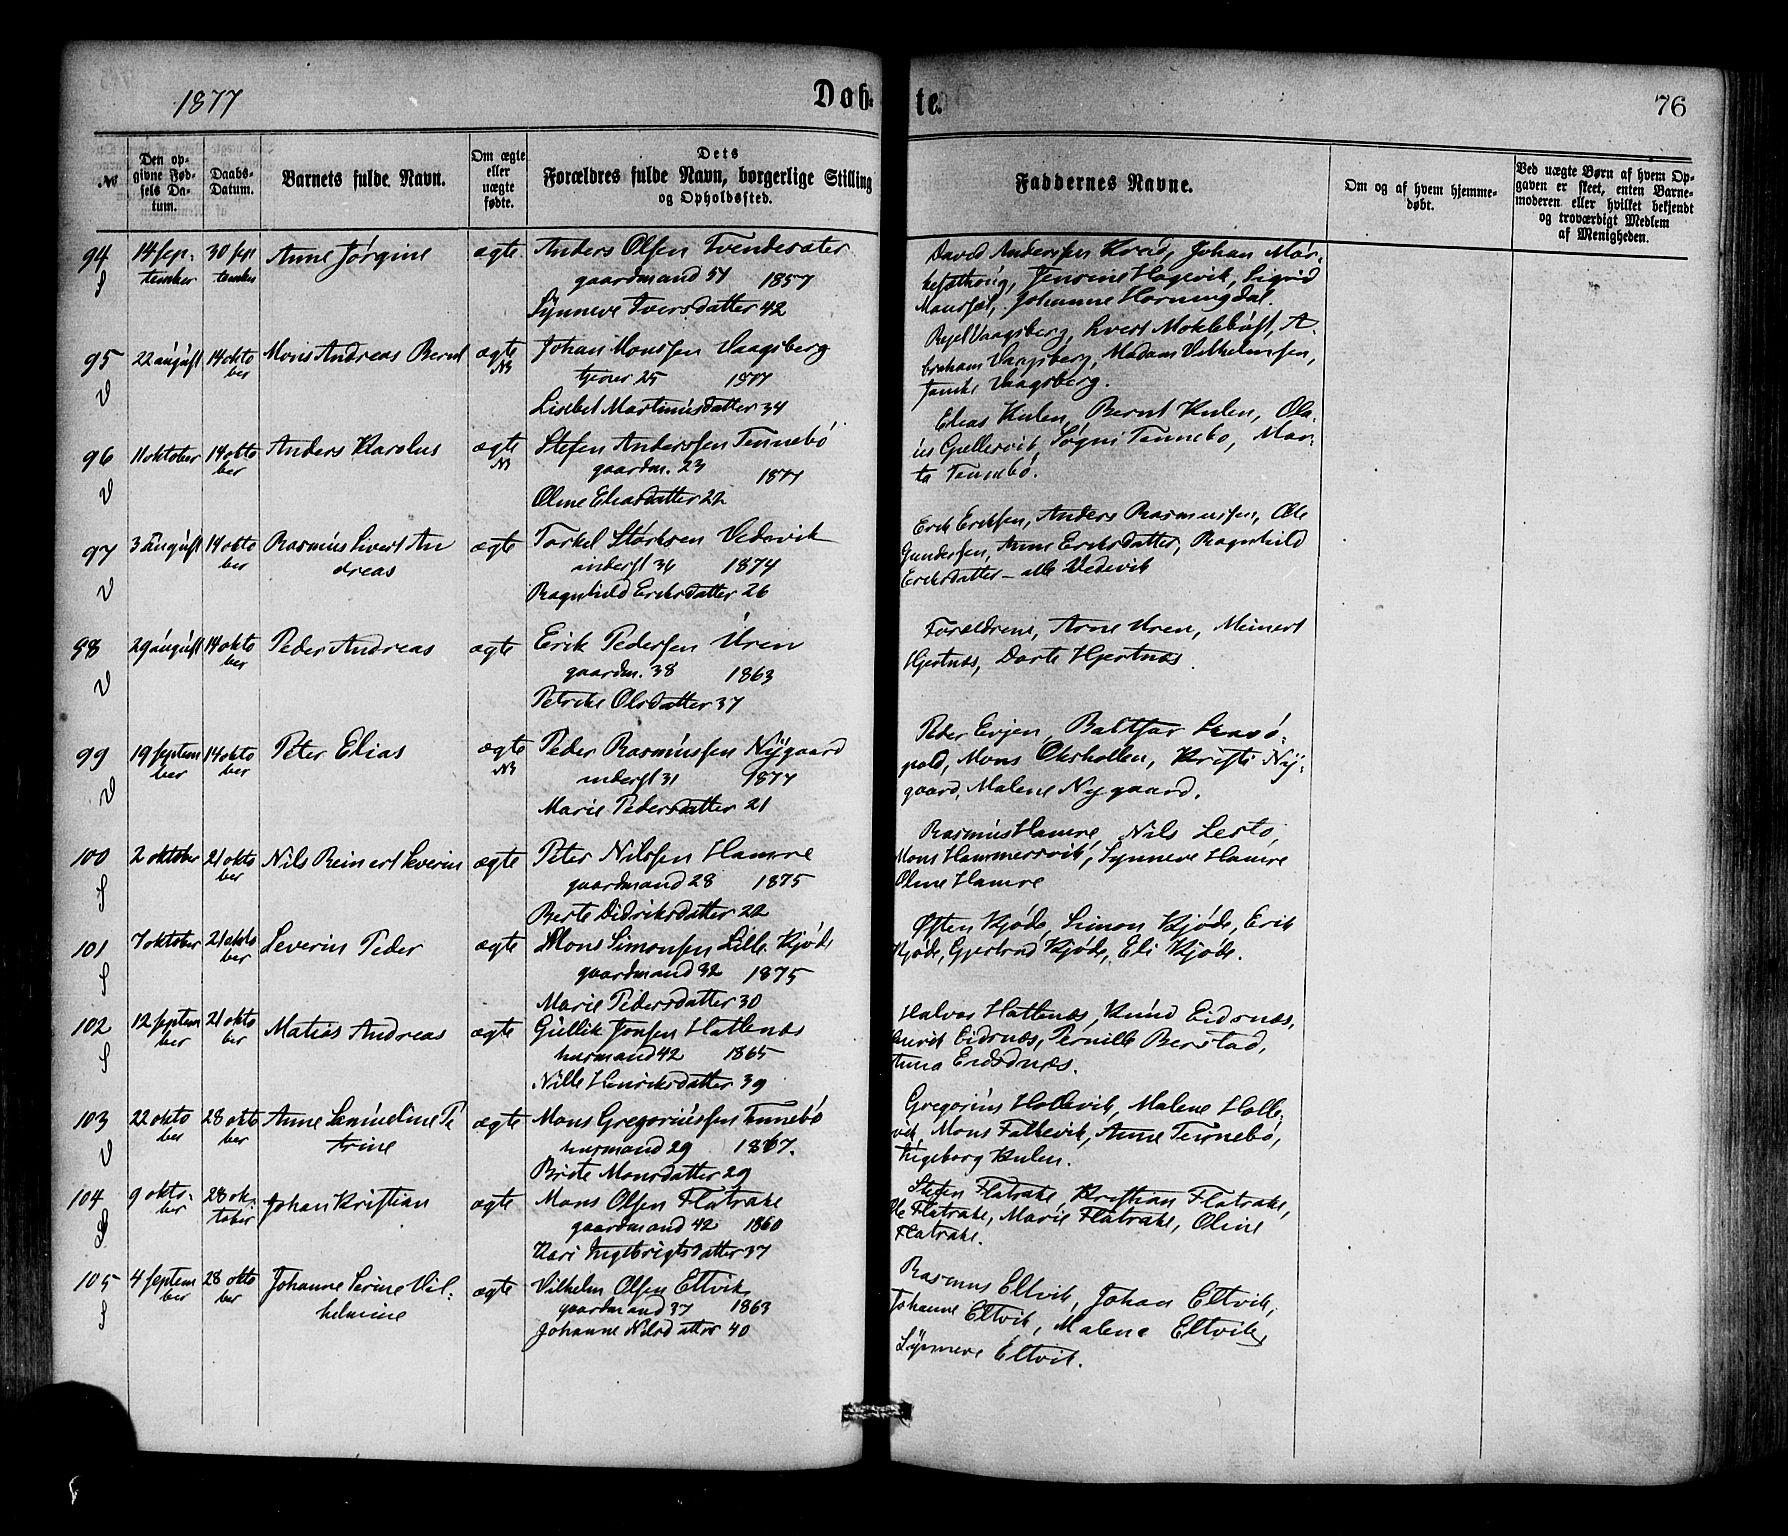 1877
Døb-
te.
76
№
Den op-
givne Fød-
sels Da-
tum.
Daabs-
Datum.
Barnets fulde Navn.
Om ægte
eller
uægte
fødte.
Dets
Forældres fulde Navn, borgerlige Stilling
og Opholdssted.
Faddernes Navne.
Om og af hvem hjemme-
døbt.
Ved uægte Børn af hvem Op-
gaven er skeet, enten Barne-
moderen eller hvilket bekjendt
og troværdigt Medlem
af Menigheden.
94 14 sep- 30 sep Anne Jørgine ægte Anders Olsen Tvendesæter
S tember tember gaardmand 57 1857
Synneve Iversdatter 42
David Anderssen Hvad, Johan Mør-
Jensine Hagevik, Sigrid
Maursæt, Johanne Hornungdal.
95 22 august 14 okto Mons Andreas Bernt ægte Johan Monssen Vaagsberg
V ber N tjener 25 1877
Lisebet Martinusdatter 34
Vaagsberg, Sivert Moklebust, A-
braham Vaagsberg, Madam Vilhelmsen,
Vaagsberg.
96 11 oktober 14 okto Anders Karolus ægte Stefen Anderssen Tennebø
V ber N gaardm. 23 1877
Oline Eliasdatter 22
Elias Kulen, Bernt Kulen, Ola-
us Gullesvik, Søgni Tennebø, Mar-
ta Tennebø.
97 3 august 14 okto Rasmus Sivert An ægte Torkel Størksen Vedevik
V ber dreas inderst 36 1874
Ragnhild Eriksdatter 26
Erik Eriksen, Anders Rasmussen, Ole
Gundersen, Anne Eriksdatter, Ragnhild
Eriksdatter - alle Vedevik
98 29 august 14 okto Peder Andreas ægte Erik Pedersen Uren
V ber gaardm. 38 1863
Petrike Olsdatter 37
Forældrene, Arne Uren, Meinert
Hjertnæs, Dorte Hjertnæs.
99 19 septem 14 okto Peter Elias ægte Peder Rasmussen Nygaard
V ber ber N inderst 31 1877
Marie Pedersdatter 21
Peder Evjen, Baltsar Leavø-
pold, Mons Okshollen, Kristi Ny-
gaard, Malene Nygaard.
100 2 oktober 21 okto Nils Reinert Severin ægte Peter Nilssen Hamre
S ber gaardmand 28 1875
Berte Didriksdatter 22
Rasmus Hamre, Nils Lestø,
Mons Hammersvik, Synneve Hamre
Oline Hamre
101 7 oktober 21 okto Severin Peder ægte Mons Simonsen Lille Kjøde
S ber gaardmand 32 1875
Marie Pedersdatter 30
Østen Kjøde, Simon Kjøde, Erik
Kjøde, Gjertrud Kjøde, Eli Kjøde.
102 12 septem 21 okto Matias Andreas ægte Gullik Jonsen Hatlenæs
S ber ber husmand 42 1865
Nille Henriksdatter 39
Halvor Hatlenæs, Knud Eidsnæs,
Henrik Eidsnæs, Pernille Berstad,
Anna Eidsnæs.
103 22 okto 28 okto Anne Samueline Pe ægte Mons Gregoriussen Tennebø
V ber ber trine husmand 29 1867.
Brite Monsdatter 29
Gregorius Hollevik, Malene Holle-
vik, Mons Fallevik, Anne Tennebø,
Ingeborg Kulen.
104 9 okto- 28 ok- Johan Kristian ægte Mons Olsen Flatrake
S ber tober gaardmand 42 1860
Kari Ingebrigtsdatter 37
Stefen Flatrake, Kristian Flatrake,
Ole Flatrake, Marie Flatrake, Oline
Flatrake.
105 4 septem 28 okto Johanne Serine Vil- ægte Vilhelm Olsen Eltvik
S ber ber helmine gaardmand 37 1863
Johanne Nilsdatter 40
Rasmus Eltvik, Johan Eltvik,
Johanne Eltvik, Malene Eltvik,
Synneve Eltvik.